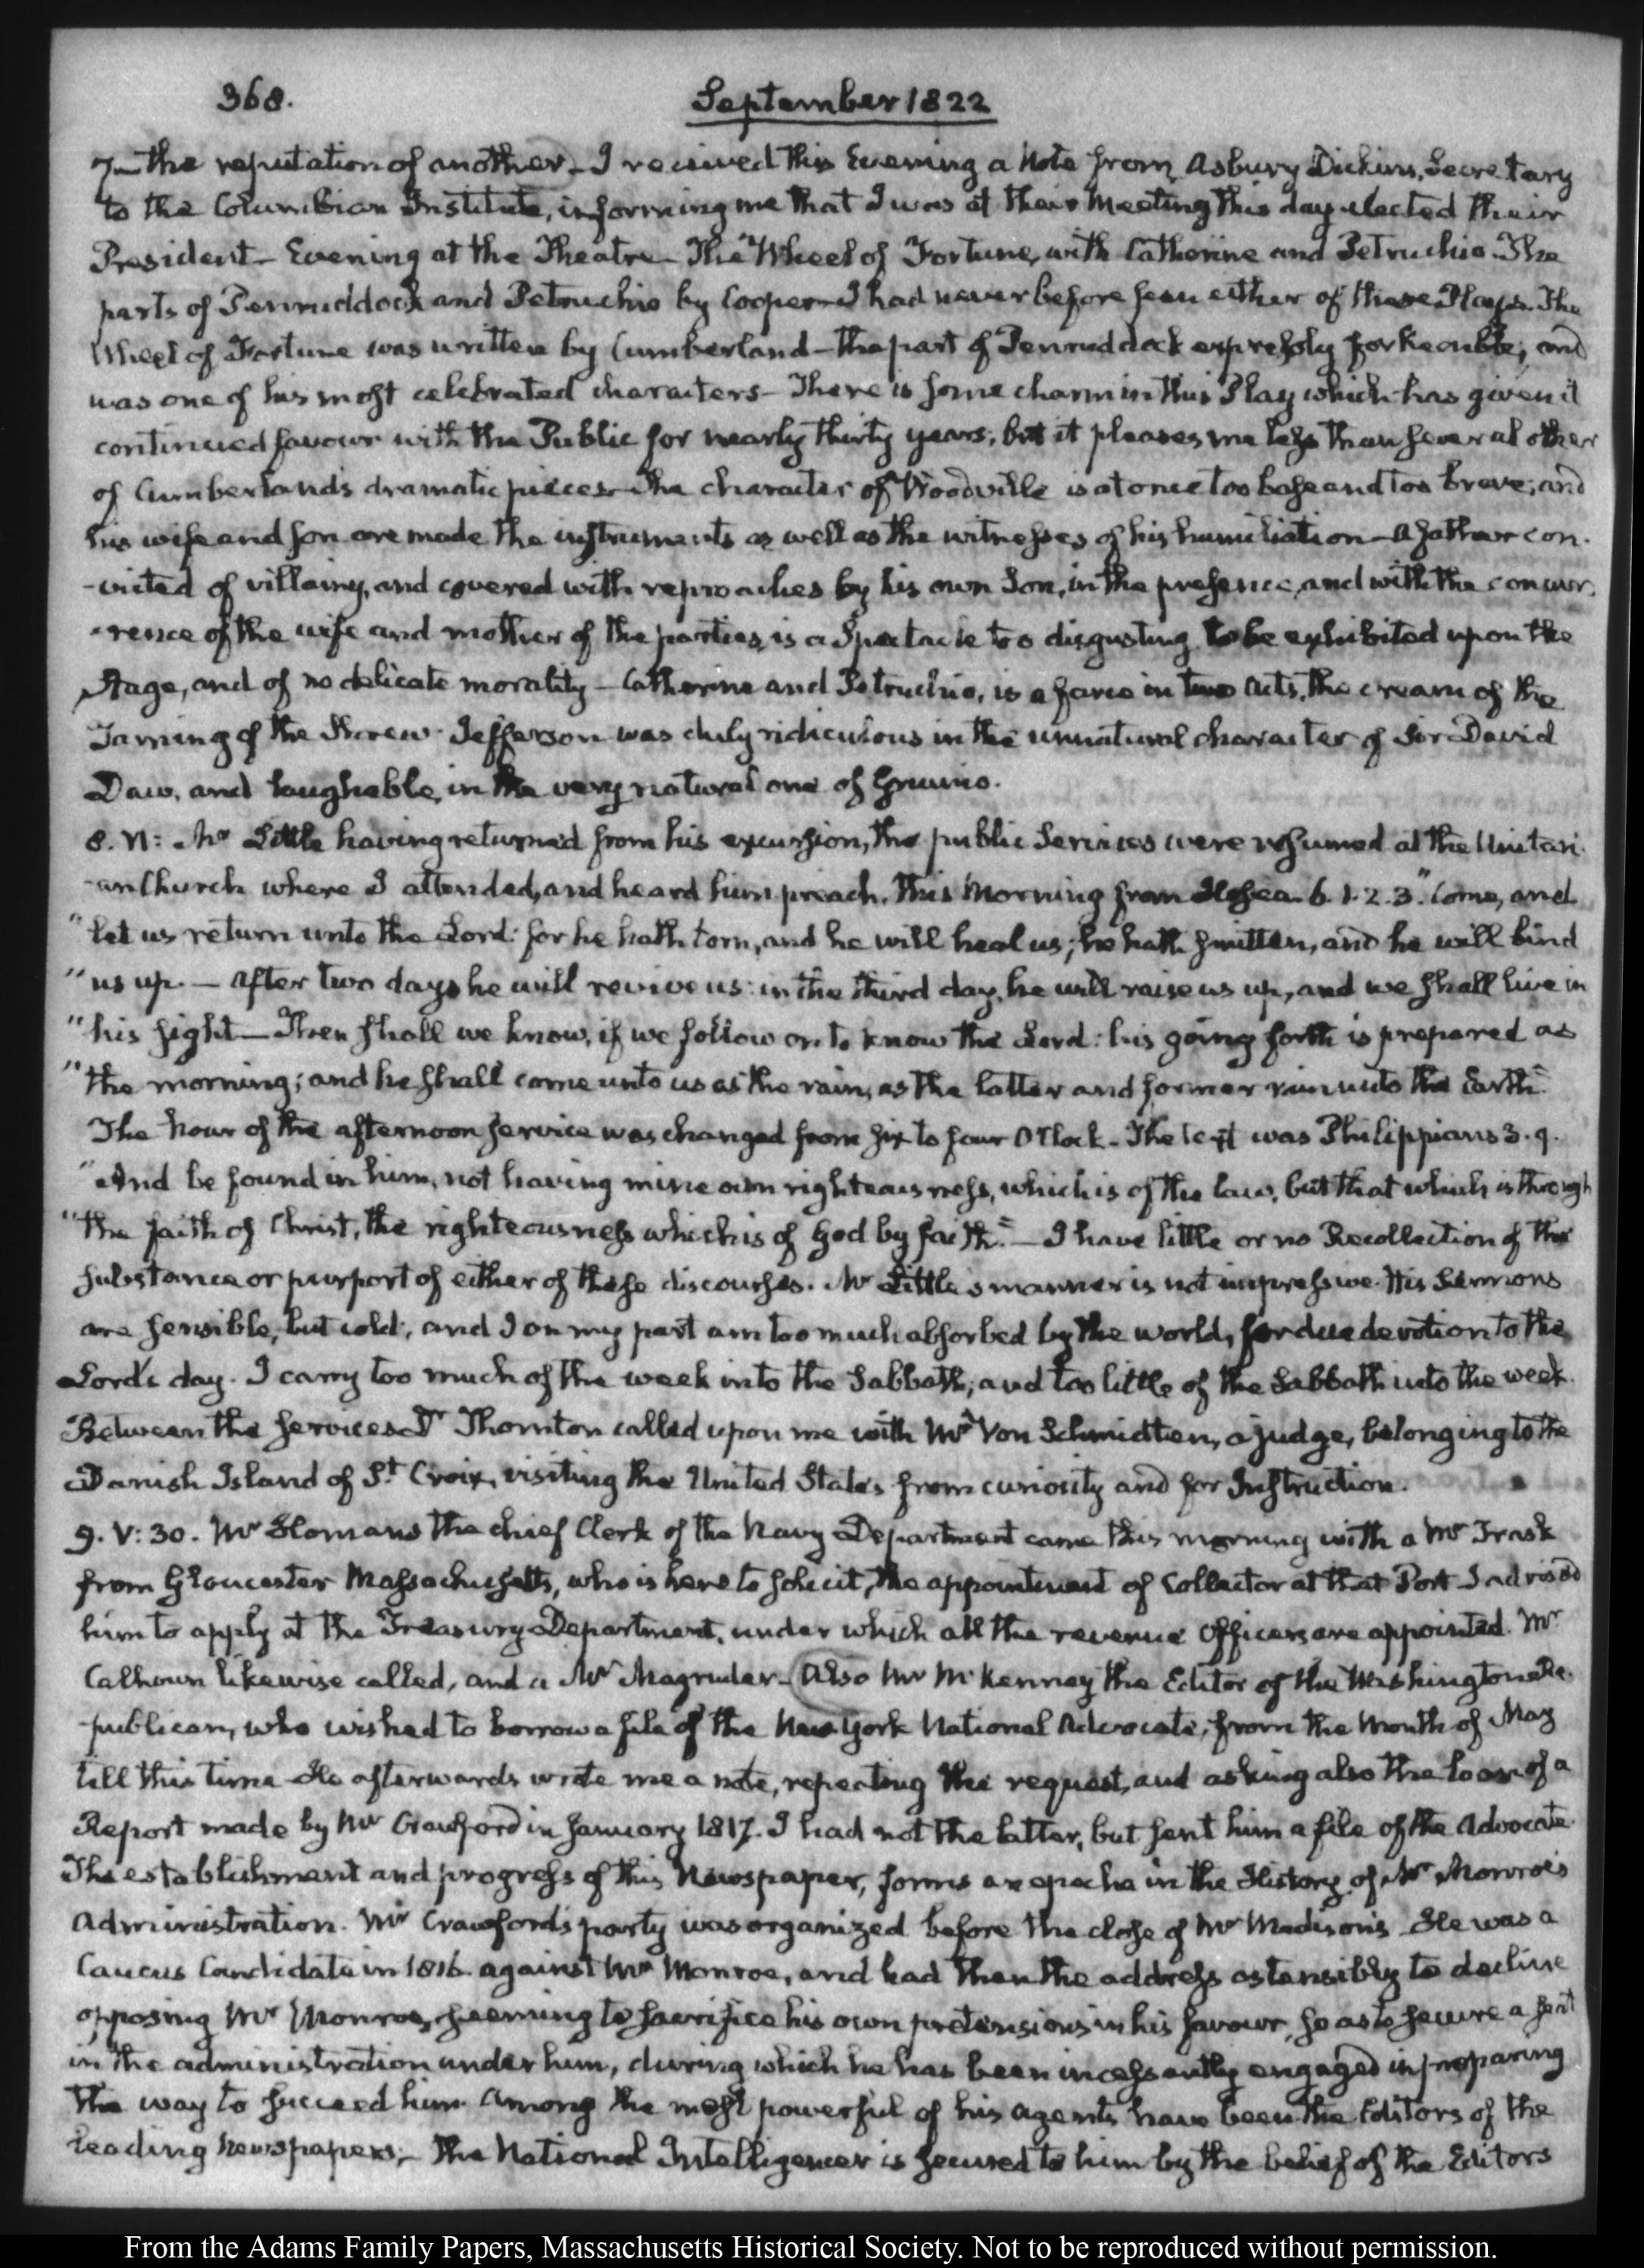 368.
September 1822
In the reputation of another - I received this Evening a Note from Asbury Dickins, Secretary
to the Columbian Institute, informing me that I was at their Meeting this day elected their
President - Evening at the Theatre - The Wheel of Fortune, with Catherine and Petruchio. The
parts of Penruddock and Petruchio by Cooper - I had never before seen either of these Plays. The
Wheel of Fortune was written by Cumberland - the part of Penruddock expressly for Kemble; and
was one of his most celebrated characters - There is some charm in this Play which has given it
continued favour with the Public for nearly thirty years; but it pleases me less than several other
of Cumberland's dramatic pieces - The character of Woodville is at once too base and too brave; and
his wife and son are made the instruments as well as the witnesses of his humiliation - A father con-
-victed of villainy, and covered with reproaches by his own Son, in the presence, and with the concur-
-rence of the wife and mother of the parties, is a Spectacle too disgusting to be exhibited upon the
Stage, and of no delicate morality - Catherine and Petruchio, is a farce in two Acts, the cream of the
Taming of the Shrew. Jefferson was duly ridiculous in the unnatural character of Sir David
Daw, and laughable, in the very natural one of Grumio.
8. VI: Mr Little having returned from his excursion, the public Services were resumed at the Unitari-
-an Church where I attended, and heard him preach. This Morning from Hosea 6. 1. 2. 3. "Come, and
"let us return unto the Lord: for he hath torn, and he will heal us; he hath smitten, and he will bind
"us up. - After two days he will revive us: in the third day, he will raise us up, and we shall live in
"his sight - Then shall we know, if we follow on to know the Lord: his going forth is prepared as
"the morning; and he shall come unto us as the rain, as the latter and former rain unto the Earth."
The hour of the afternoon service was changed from six to four O'Clock - The text was Philippians 3. 9.
"And be found in him, not having mine own righteousness, which is of the law, but that which is through
"the faith of Christ, the righteousness which is of God by faith." - I have little or no Recollection of the
substance or purport of either of these discourses. Mr Little's manner is not impressive. His Sermons
are sensible, but cold; and I on my part am too much absorbed by the world, for due devotion to the
Lord's day. I carry too much of the week into the Sabbath, and too little of the Sabbath into the week.
Between the services Dr Thornton called upon me with Mr Von Schmidten, a judge, belonging to the
Danish Island of St Croix, visiting the United States from curiosity and for Instruction.
9. V: 30. Mr Homans the chief Clerk of the Navy Department came this morning with a Mr Trask
from Gloucester Massachusetts, who is here to solicit, the appointment of Collector at that Port. I advised
him to apply at the Treasury Department, under which all the revenue Officers are appointed. Mr
Calhoun likewise called, and a Mr Magruder - Also Mr McKenney the Editor of the Washington Re-
-publican, who wished to borrow a file of the New York National Advocate, from the Month of May
till this time. He afterwards wrote me a note, repeating the request, and asking also the loan of a
Report made by Mr Crawford in January 1817. I had not the latter, but sent him a file of the Advocate.
The establishment and progress of this Newspaper, forms an epocha in the History of Mr Monroe's
Administration. Mr Crawford's party was organized before the close of Mr Madison's. He was a
Caucus Candidate in 1816 against Mr Monroe, and had then the address ostensibly to decline
opposing Mr Monroe, seeming to sacrifice his own pretensions in his favour, so as to secure a seat
in the administration under him, during which he has been incessantly engaged in preparing
the way to succeed him. Among the most powerful of his agents have been the Editors of the
leading Newspapers; - The National Intelligencer is secured to him by the belief of the Editors
From the Adams Family Papers, Massachusetts Historical Society. Not to be reproduced without permission.